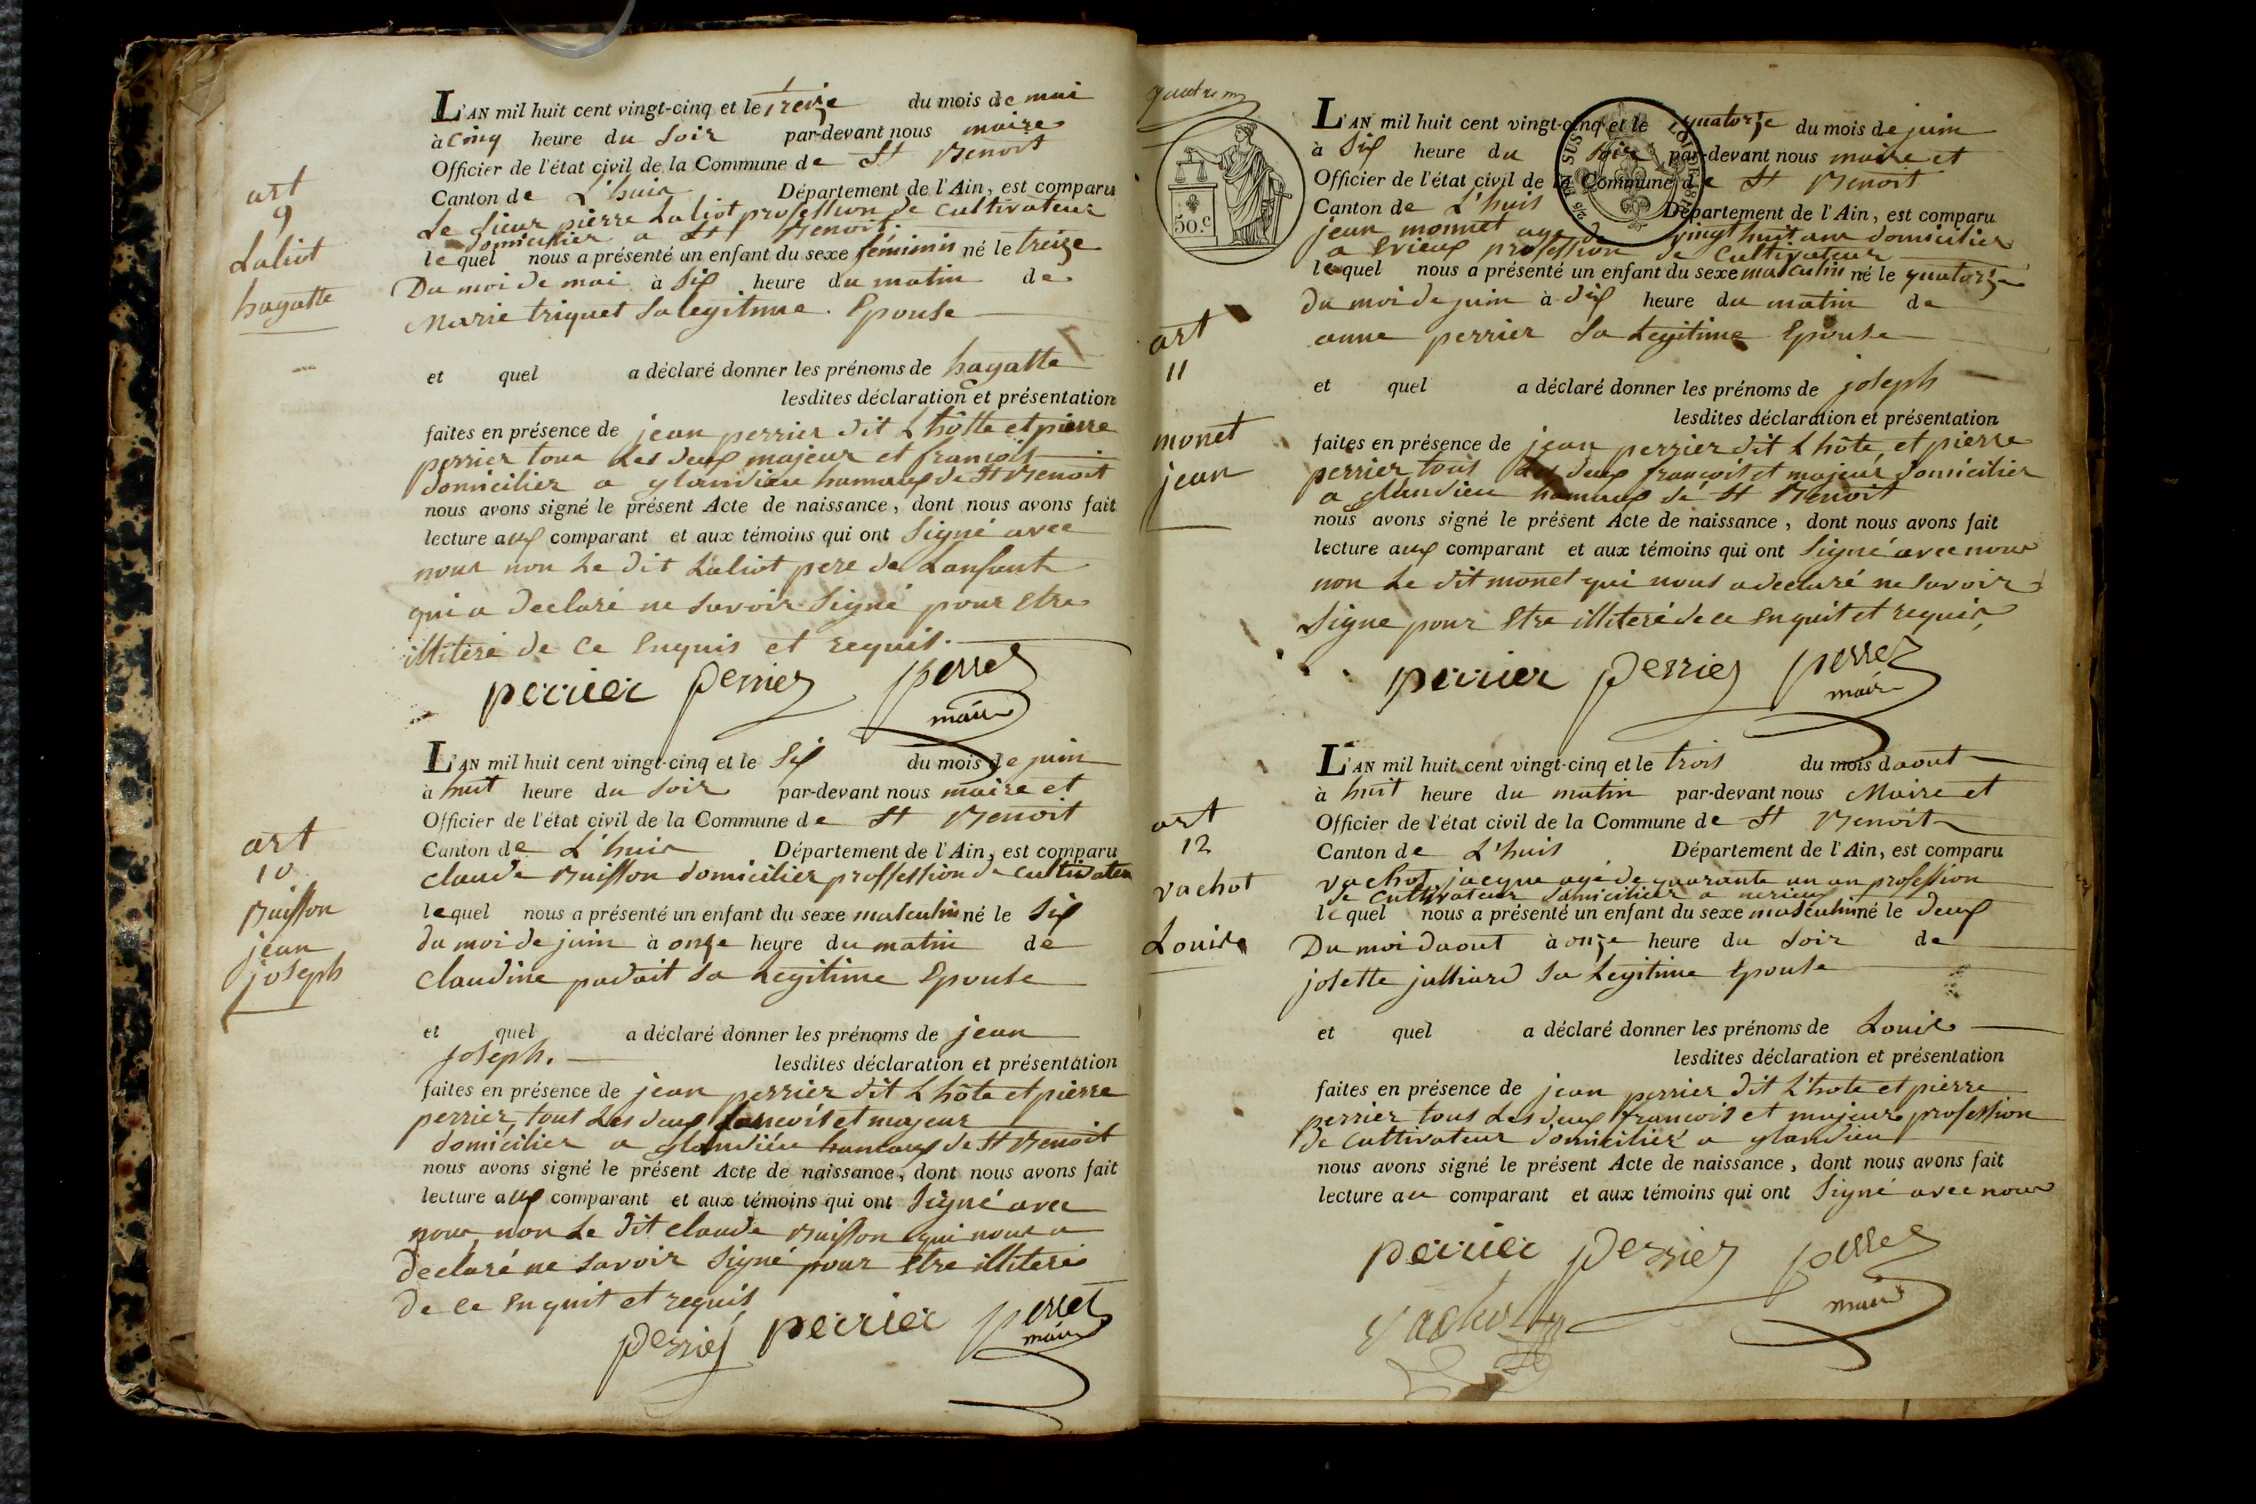 art
9
Laliot
hagatte
L'AN mil huit cent vingt-cinq et le treize du mois de mai
à cinq heure du soir par-devant nous maire
Officier de l'état civil de la Commune de St Benoit
Canton de L'huis Département de l'Ain, est comparu
Le sieur pierre Laliot profession de cultivateur
domicilier a St Benoit
lequel nous a présenté un enfant du sexe féminin né le treize
Du moi de mai à six heure du matin de
Marie triquet sa legitime Epouse
et quel a déclaré donner les prénoms de hagatte
lesdites déclaration et présentation
faites en présence de jean perrier dit L'hôtte et pierre
perrier tous Les deux majeur et francois
domicilier a glandieu hamaux de St Benoit
nous avons signé le présent Acte de naissance, dont nous avons fait
lecture aux comparant et aux témoins qui ont signé avec
nous non Le dit Laliot pere de Lanfant
qui a declaré ne savoir signé pour etre
illiteré de ce enquis et requis.
perrier perrier perret
maire
art
10
Buisson
jean
joseph
L'AN mil huit cent vingt-cinq et le six du mois de juin
à huit heure du soir par-devant nous maire et
Officier de l'état civil de la Commune de St Benoit
Canton de L'huis Département de l'Ain, est comparu
claude Buisson domicilier proffession de cultivateu
lequel nous a présenté un enfant du sexe masculin né le six
du moi de juin à onze heure du matin de
claudine padait sa Legitime Epouse
et quel a déclaré donner les prénoms de jean
joseph. lesdites déclaration et présentation
faites en présence de jean perrier dit L'hôte et pierre
perrier, tout Les deux francois et majeur
domicilier a glandieu hamaux de St Benoit
nous avons signé le présent Acte de naissance, dont nous avons fait
lecture aux comparant et aux témoins qui ont signé avec
nous, non Le dit claude Buisson qui nous a
declaré ne savoir signé pour etre illiteré
de ce enquit et requis
perrier perrier perret
maire
50.c
EN SUS
LOI DE 1816
art
11
monet
jean
L'AN mil huit cent vingt-cinq et le quatorze du mois de juin
à six heure du soir par-devant nous maire et
Officier de l'état civil de la Commune de St Benoit
Canton de L'huis Département de l'Ain, est comparu
jean monnet age de vingt huit ans domicilier
a Evieux profession de cultivateur
lequel nous a présenté un enfant du sexe masculin né le quatorze
du moi de juin à dix heure du matin de
anne perrier sa Legitime Epouse
et quel a déclaré donner les prénoms de joseph
lesdites déclaration et présentation
faites en présence de jean perrier dit L'hôte, et pierre
perrier tous Les deux francois et majeur domicilier
a glandieu hamaux de St Benoit
nous avons signé le présent Acte de naissance, dont nous avons fait
lecture aux comparant et aux témoins qui ont signé avec nous
non Le dit monet qui nous a declaré ne savoir
signe pour etre illiteré de ce enquit et requis
perrier perrier perret
maire
art
12
vachot
Louis
L'AN mil huit cent vingt-cinq et le trois du mois daout
à huit heure du matin par-devant nous Maire et
Officier de l'état civil de la Commune de St Benoit
Canton de L'huis Département de l'Ain, est comparu
vachot jacque agé de quarante un an profession
de cultivateur domicilier a
lequel nous a présenté un enfant du sexe masculin né le deux
Du moi daout à onze heure du soir de
josette julliard sa Legitime Epouse
et quel a déclaré donner les prénoms de Louis
lesdites déclaration et présentation
faites en présence de jean perrier dit L'hote et pierre
perrier tous Les deux francois et majeur profession
de cultivateur domicilier a glandieu
nous avons signé le présent Acte de naissance, dont nous avons fait
lecture au comparant et aux témoins qui ont signé avec nous
perrier perrier perret
maire
Vachot